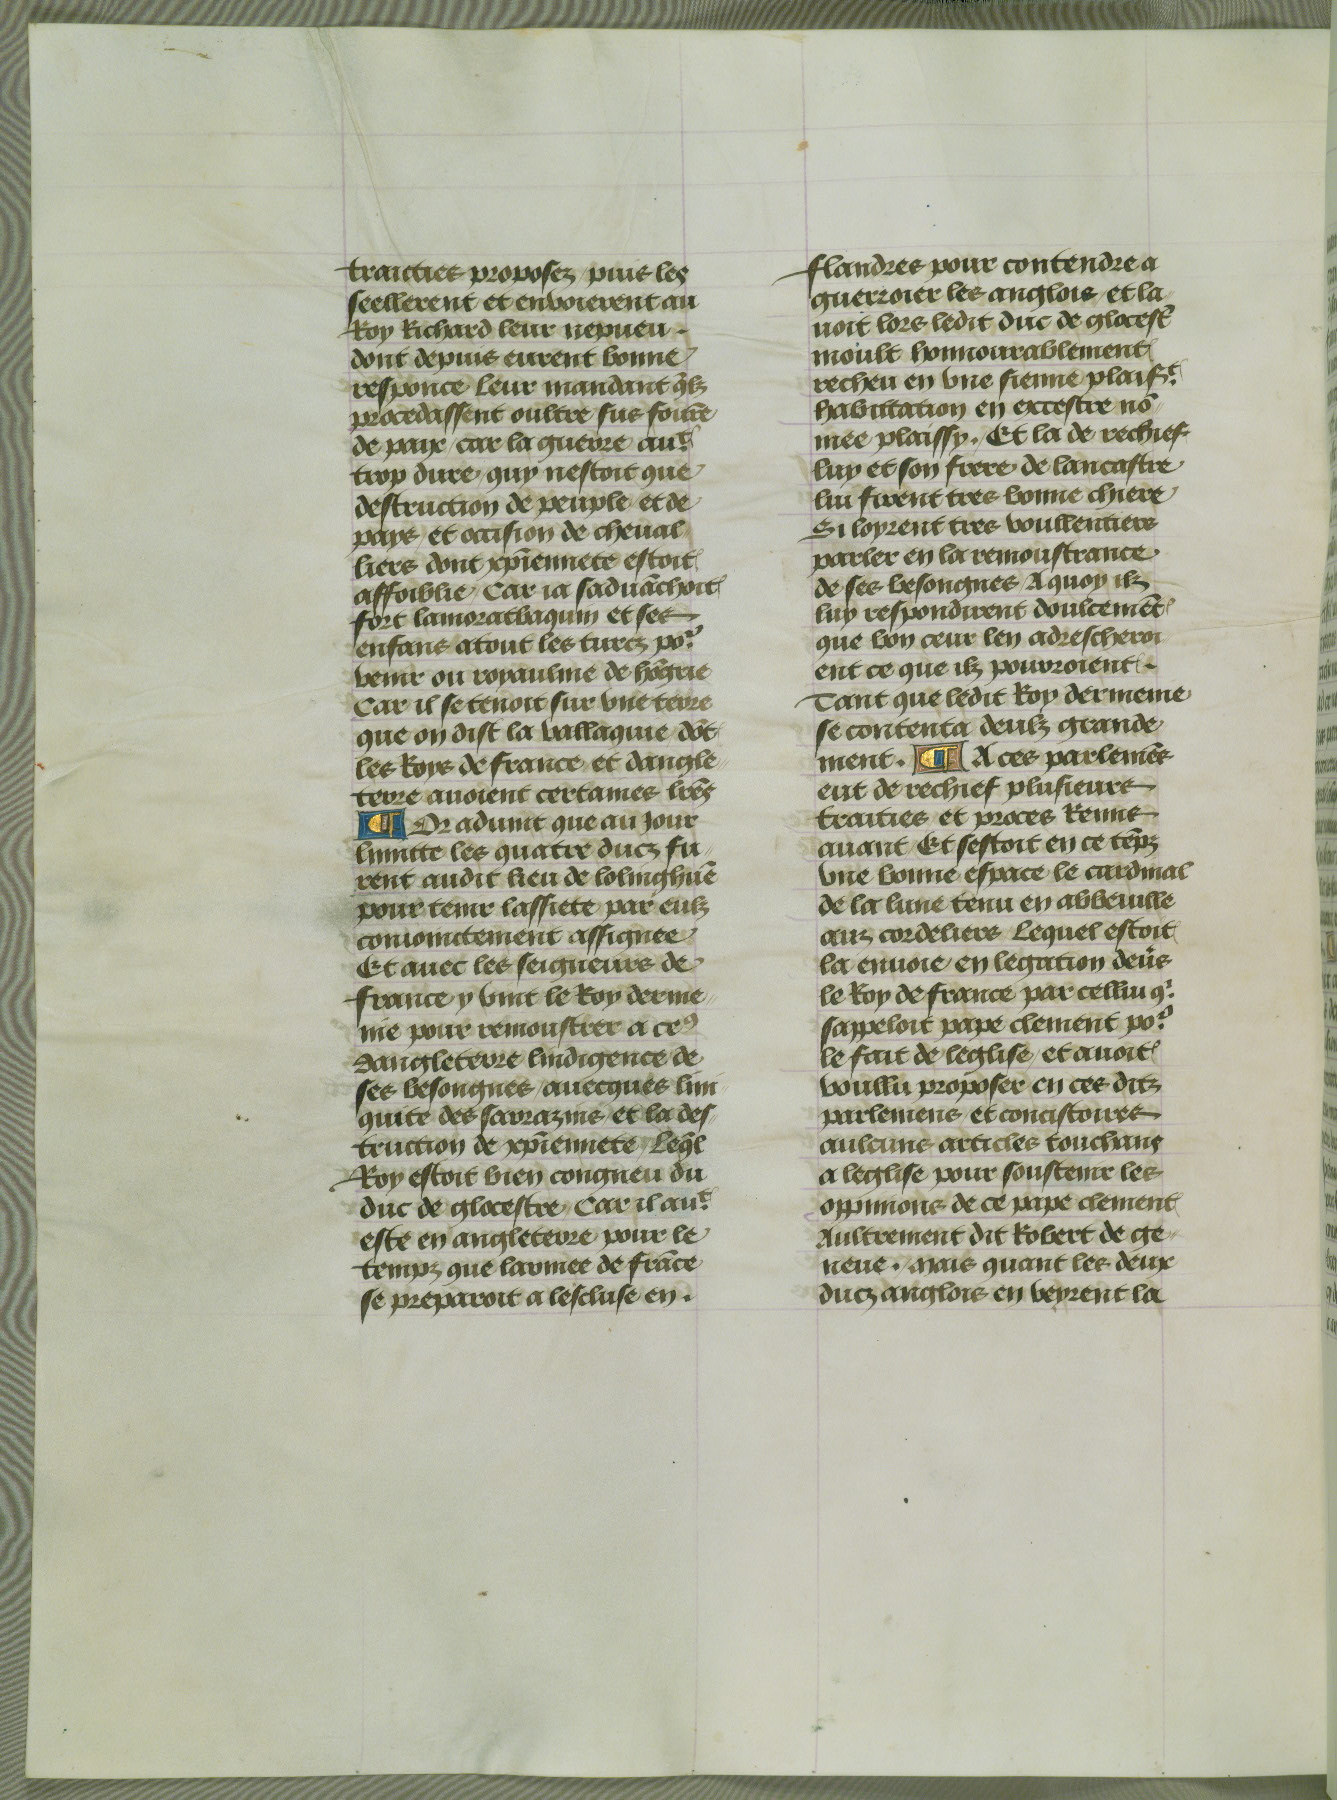 traicties proposez puis les
seellerent et envoierent au
Roy Richard leur nepueu .
dont depuis eurent bonne
responce leur mandant q̃lz
procedassent oultre sus fourẽ
de paix car la guerre auͭ
trop dure quy nestoit que
destruction de peuple et de
pays et occision de cheual
liers dont xp̃iennete estoit
affoiblie Car ia saduãchoit
fort lamorathaquin et ses
enfans atout les turcz poʳ
venir ou royaulme de hõgrie
Car il se tenoit sur vne terre
que on dist la vallaquie dõt
les Roys de france et dangle
terre auoient certaines lr̃es
¶ Or aduint que au jour
limitte les quatre ducz fu
rent audit lieu de lolinghuẽ
pour tenir lassiete par eulz
conioinctement assignee
Et auec les seigneurs de
france y vint le Roy derme
nie pour remoustrer a ceꝰ
dangleterre lindigence de
ses besongnes auecques lini
quite des sarrazins et la des
truction de xp̃iennete Leq̃l
Roy estoit bien congneu du
duc de glocestre Car il auͭ
este en angleterre pour le
tempz que larmee de frãce
se preparoit a lescluse en .
flandres pour contendre a
guerroier les anglois et la
uoit lors ledit duc de glocest̃
moult honnourablement
recheu en vne sienne plaisͭ
habittation en excestre nõ
mee plaissy . Et la de rechief
luy et son frere de lancastre
lui firent tres bonne chiere
Si loyrent tres voullentiers
parler en la remoustrance
de ses besongnes A quoy ilz
luy respondirent doulcemẽt
que bon ceur len adrescheroi
ent ce que ilz pouroient .
Tant que ledit Roy dermenie
se contenta deulz grande
ment . ¶ A ces parlemẽs
eut de rechief plusieurs
traities et proces Renus
auant Et sestoit en ce tẽpz
vne bonne espace le cardinal
de la lune tenu en abbeuille
auz cordeliers Lequel estoit
la enuoie en legation deũs
le Roy de france par cellui qͥ
sappeloit pape clement poʳ
le fait de leglise et auoit
voullu proposer en ces ditz
parlemens et concistoires
aulcuns articles touchans
a leglise pour soustenir les
oppinions de ce pape clement
Aultrement dit Robert de ge
neue . Mais quant les deux
ducz anglois en veyrent la